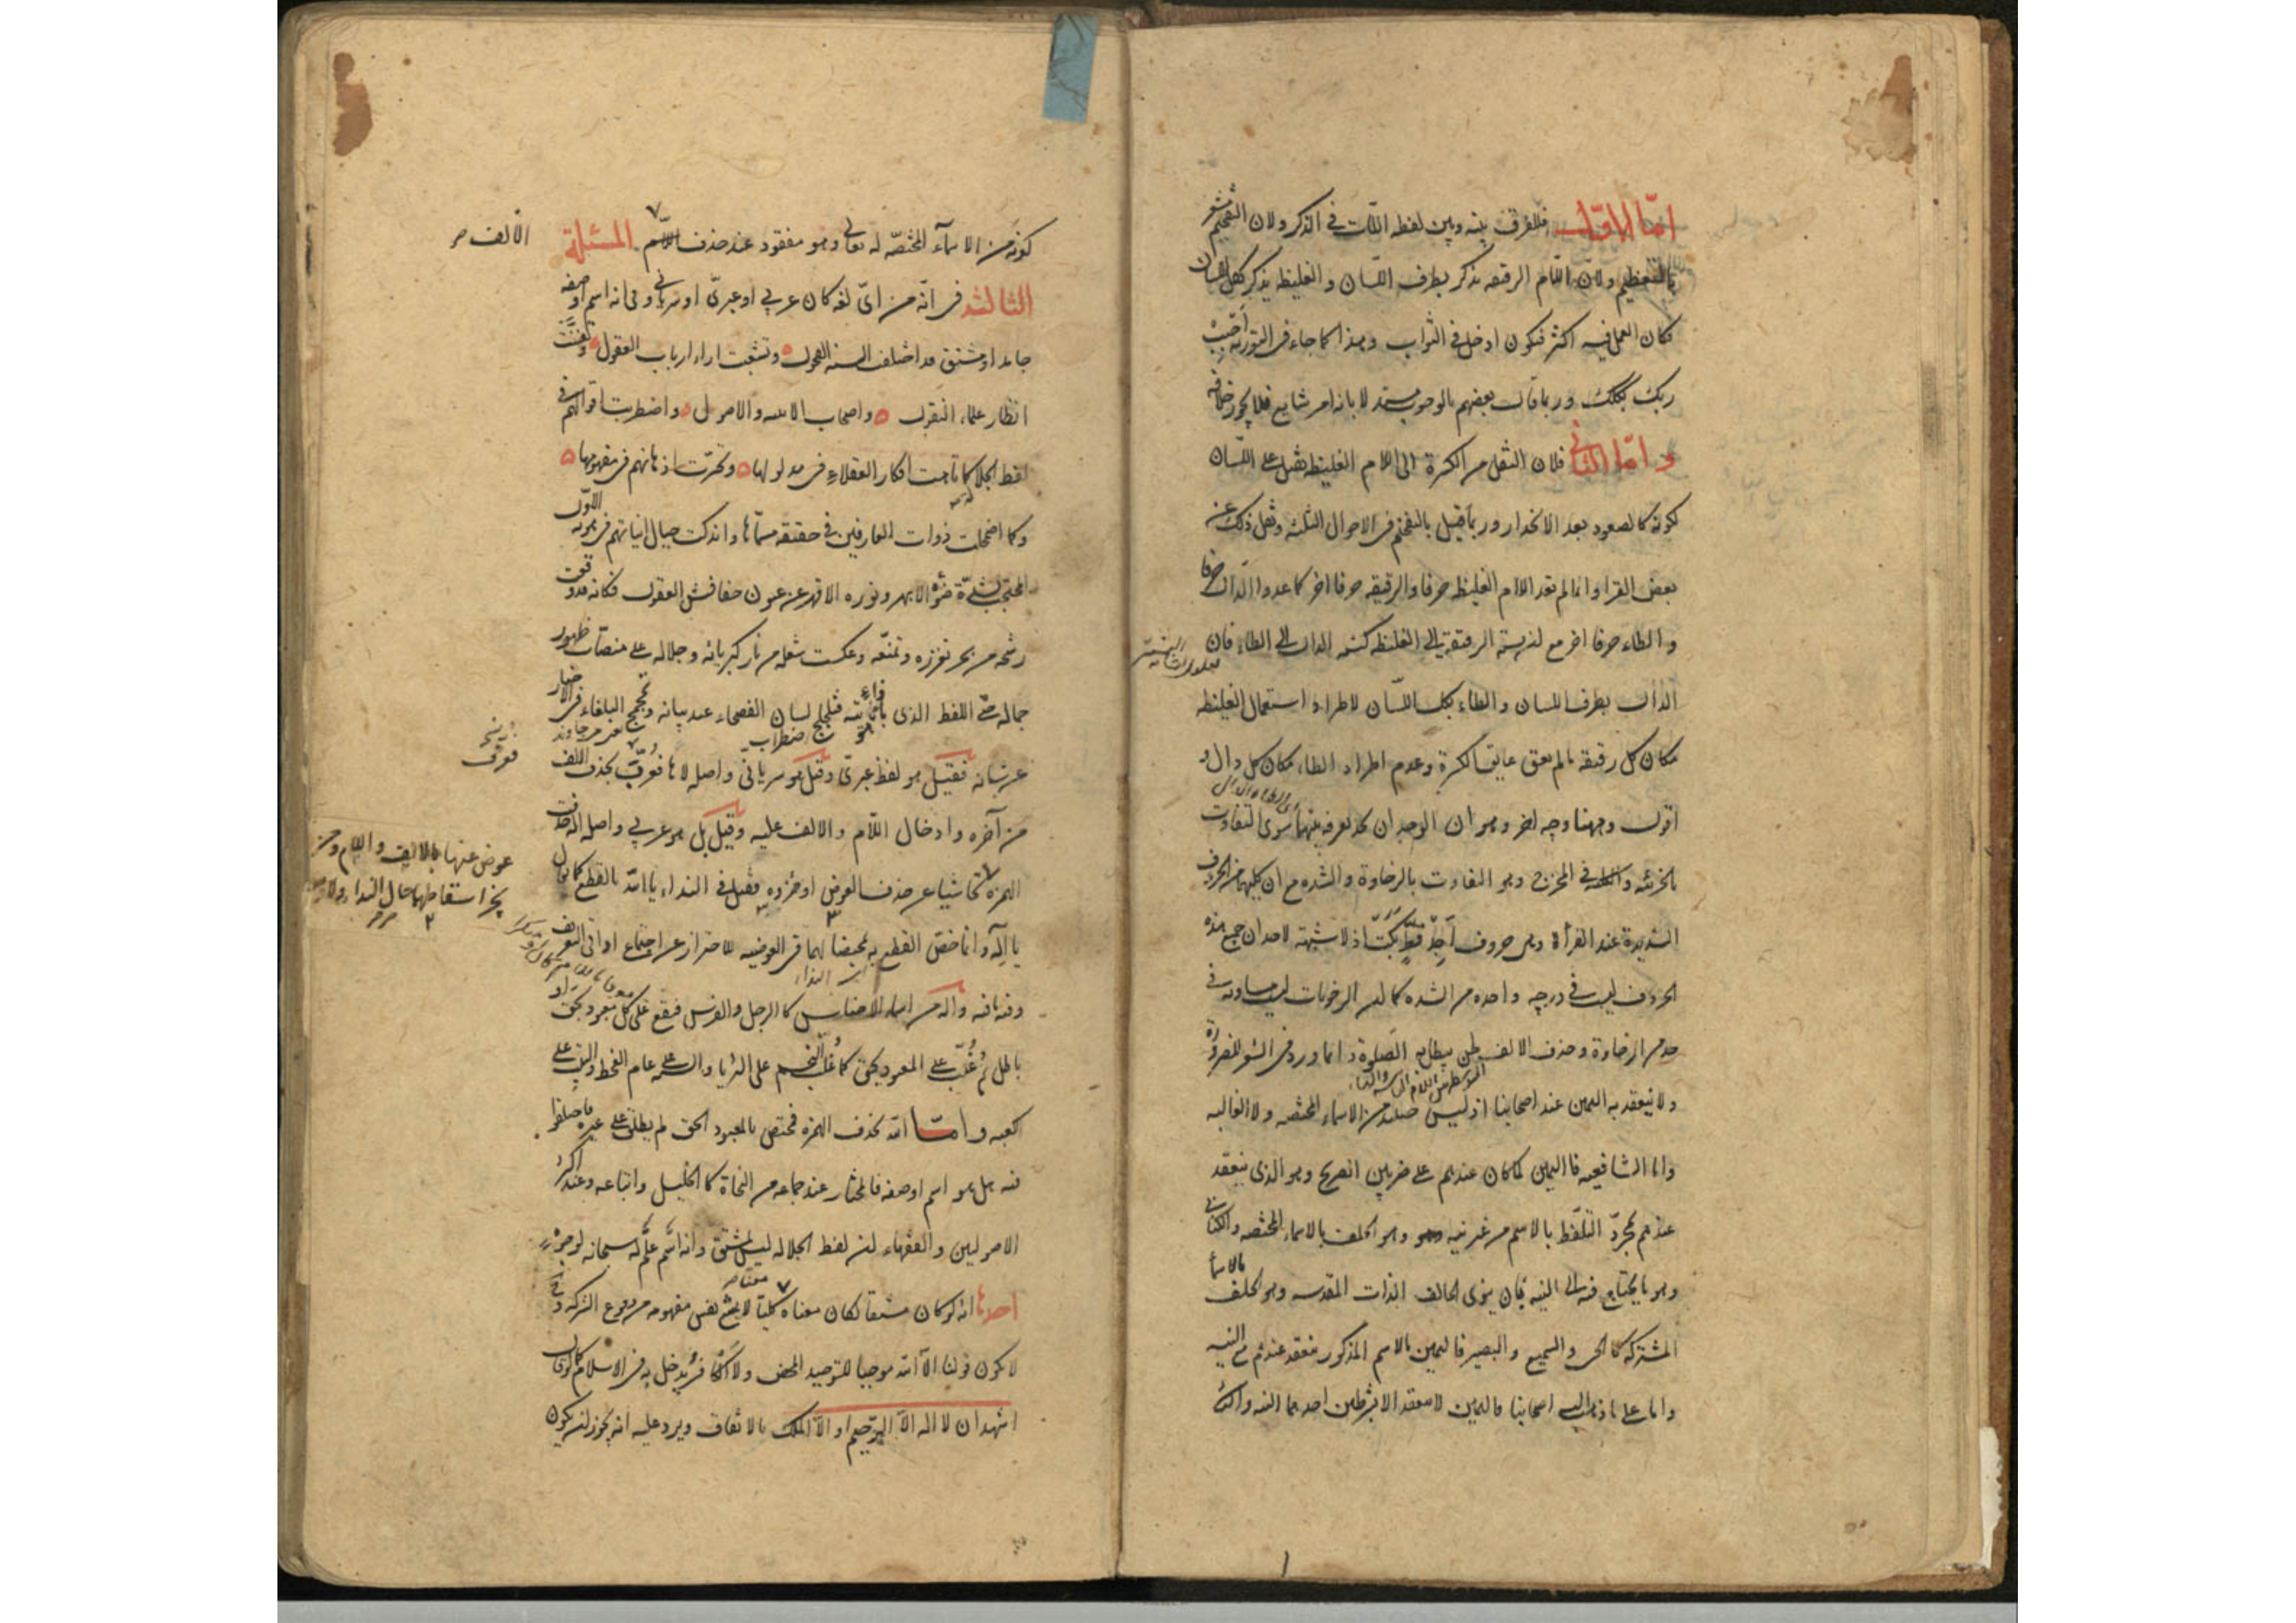 امّا الاوّل فللفرق بينه وبين لفظه اللّات في الذكر ولان التفخيم مشعر
بالتعظيم ولان اللّام الرقيقه يذكر بطرف اللّسان والغليظه يذكر بكل اللسان
فكان العمل فيه اكثر فيكون ادخل في الثواب وهذا كما جاء في التورية اَجِبْ
ربك بكلك وربما قال بعضهم بالوجوب مستدلا بانه امر شايع فلا يجوز خلافه
وامّا الثانى فلان النقل من الكسرة الى اللام الغليظه ثقيل على اللّسان
لكونه كالصعود بعد الانحدار وربما قيل بالتفخيم في الاحوال الثلثه ونقل ذلك عن
بعض القرا وانما لم تعد اللام الغليظه حرفا والرقيقه حرفا اخر كما عدوا الدال حرفا
والطاء حرفا اخر مع ان نسبة الرقيقة الى الغليظه كنسبة الدال الى الطاء فان
الدال بطرف اللسان والطاء بكل اللّسان لاطراد استعمال الغليظه
مكان كل رقيقه مالم يعق عايق الكسرة وعدم اطراد الطاء مكان كل دال و
اقول وههنا وجه اخر وهو ان الوجدان لا يعرف بينهما سوى التفاوت
في المخرج وهو التفاوت بالرخاوة والشده مع ان كليهما من الحروف
الشديدة عند القرأة وهى حروف اَجِدُ قَطٍ بَكَتْ اذ لا شبهة لاحد ان جميع هذه
الحروف ليست في درجه واحده من الشده كما ان الرخويات ليست متساويه في
حد من الرخاوة وحذف الالف لحن يبطل به الصّلوة وانما ورد في الشعر للضرورة
ولا ينعقد به اليمين عند اصحابنا اذ ليس حينئذ من الاسماء المختصه ولا الغالبه
واما الشافعيه فاليمين لما كان عندهم على ضربين الصريح وهو الذى ينعقد
عندهم بمجرّد التلفّظ بالاسم من غير نيه وهو الحلف بالاسماء المختصه والكنائى
وهو ما يحتاج فيه الى النيه بان ينوى الحالف الذات المقدسه وهو الحلف بالاسماء
المشتركه كالحى والسميع والبصير فاليمين بالاسم المذكور منعقد عندهم مع النيه
واما على ما ذهب اليه اصحابنا فاليمين لا ينعقد الا بشرطين احدهما النيه والثانى
كونه من الاسمآء المختصّه له تعالى وهو مفقود عند حذف المسئلة
الالف صر
الثالثه فى انّه من اىّ لغه كان عربى او عبرىّ او سريانى وفى انه اسم او صفه
جامد او مشتق قد اختلف السنه الفحول وتشعبت اراء ارباب العقول وتفننت
انظار علماء النقول واصحاب الابنيه والاصول واضطربت اقوالهم في
لفظ الجلالة كما تاهت افكار العقلاء فى مدلولها وتحيّرت اذهانهم فى مفهومها
وكما اضمحلت ذوات العارفين فى حقيقه مسمّاها واندكت جبال انياتهم فى هويّة الاوّل
المحتجب لشدّة ضوئه الابهر ونوره الاقهر عن عيون خفافيش العقول فكانه قد وقعت
رشحه من بحر تعززه وتمنعّه وعكست شعله من نار كبريائه وجلاله على منصّات ظهور
جماله حتّى اللفظ الذى بازائه فتلجلج لسان الفصحاء عند بيانه وتمجمج البلغاء فى الاخبار
عن شانه فقيل هو لفظ عبرىّ وقيل هو سريانى واصله لاها فعُرّب بحذف الالف
من آخره وادخال اللّام والالف عليه وقيل بل هو عربى واصله اله حذفت
عوض عنها بالالف واللام ومن
الهمزه تحاشيا عن حذف العوض او جزؤه فقيل في النداء يا الله بالقطع كما يقال
يا اله وانما خص القطع به لتمحضها لهما فى العوضيه للاحتراز عن اجتماع اداتى التعريف
وفيه ما فيه واله من اسماء الاجناس كالرجل والفرس فيقع على كل معبود بحق او
باطل ثم غُلّب على المعبود بحق كما غُلّب النّجم على الثريا والسنه على عام القحط والبيت على
الكعبه وامّا الله بحذف الهمزه فمختص بالمعبود الحق لم يطلق على غيره واختلفوا
فيه هل هو اسم او صفه فالمختار عند جماعه من النحاة كالخليل واتباعه وعند اكثر
الاصوليين والفقهاء ان لفظ الجلاله ليس بمشتق وانه اسم علم له سبحانه لوجوه
احدها انه لو كان مشتقا لكان معناه كليّا لا يمنع نفس مفهومه من وقوع الشركه و
لا يكون قولنا لا اله الا الله موجبا للتوحيد المحض ولا الكافر يدخل به فى الاسلام كما لو قال
اشهد ان لا اله الّا الرّحيم او الّا الملك بالاتفاق ويرد عليه انه يجوز ان يكون